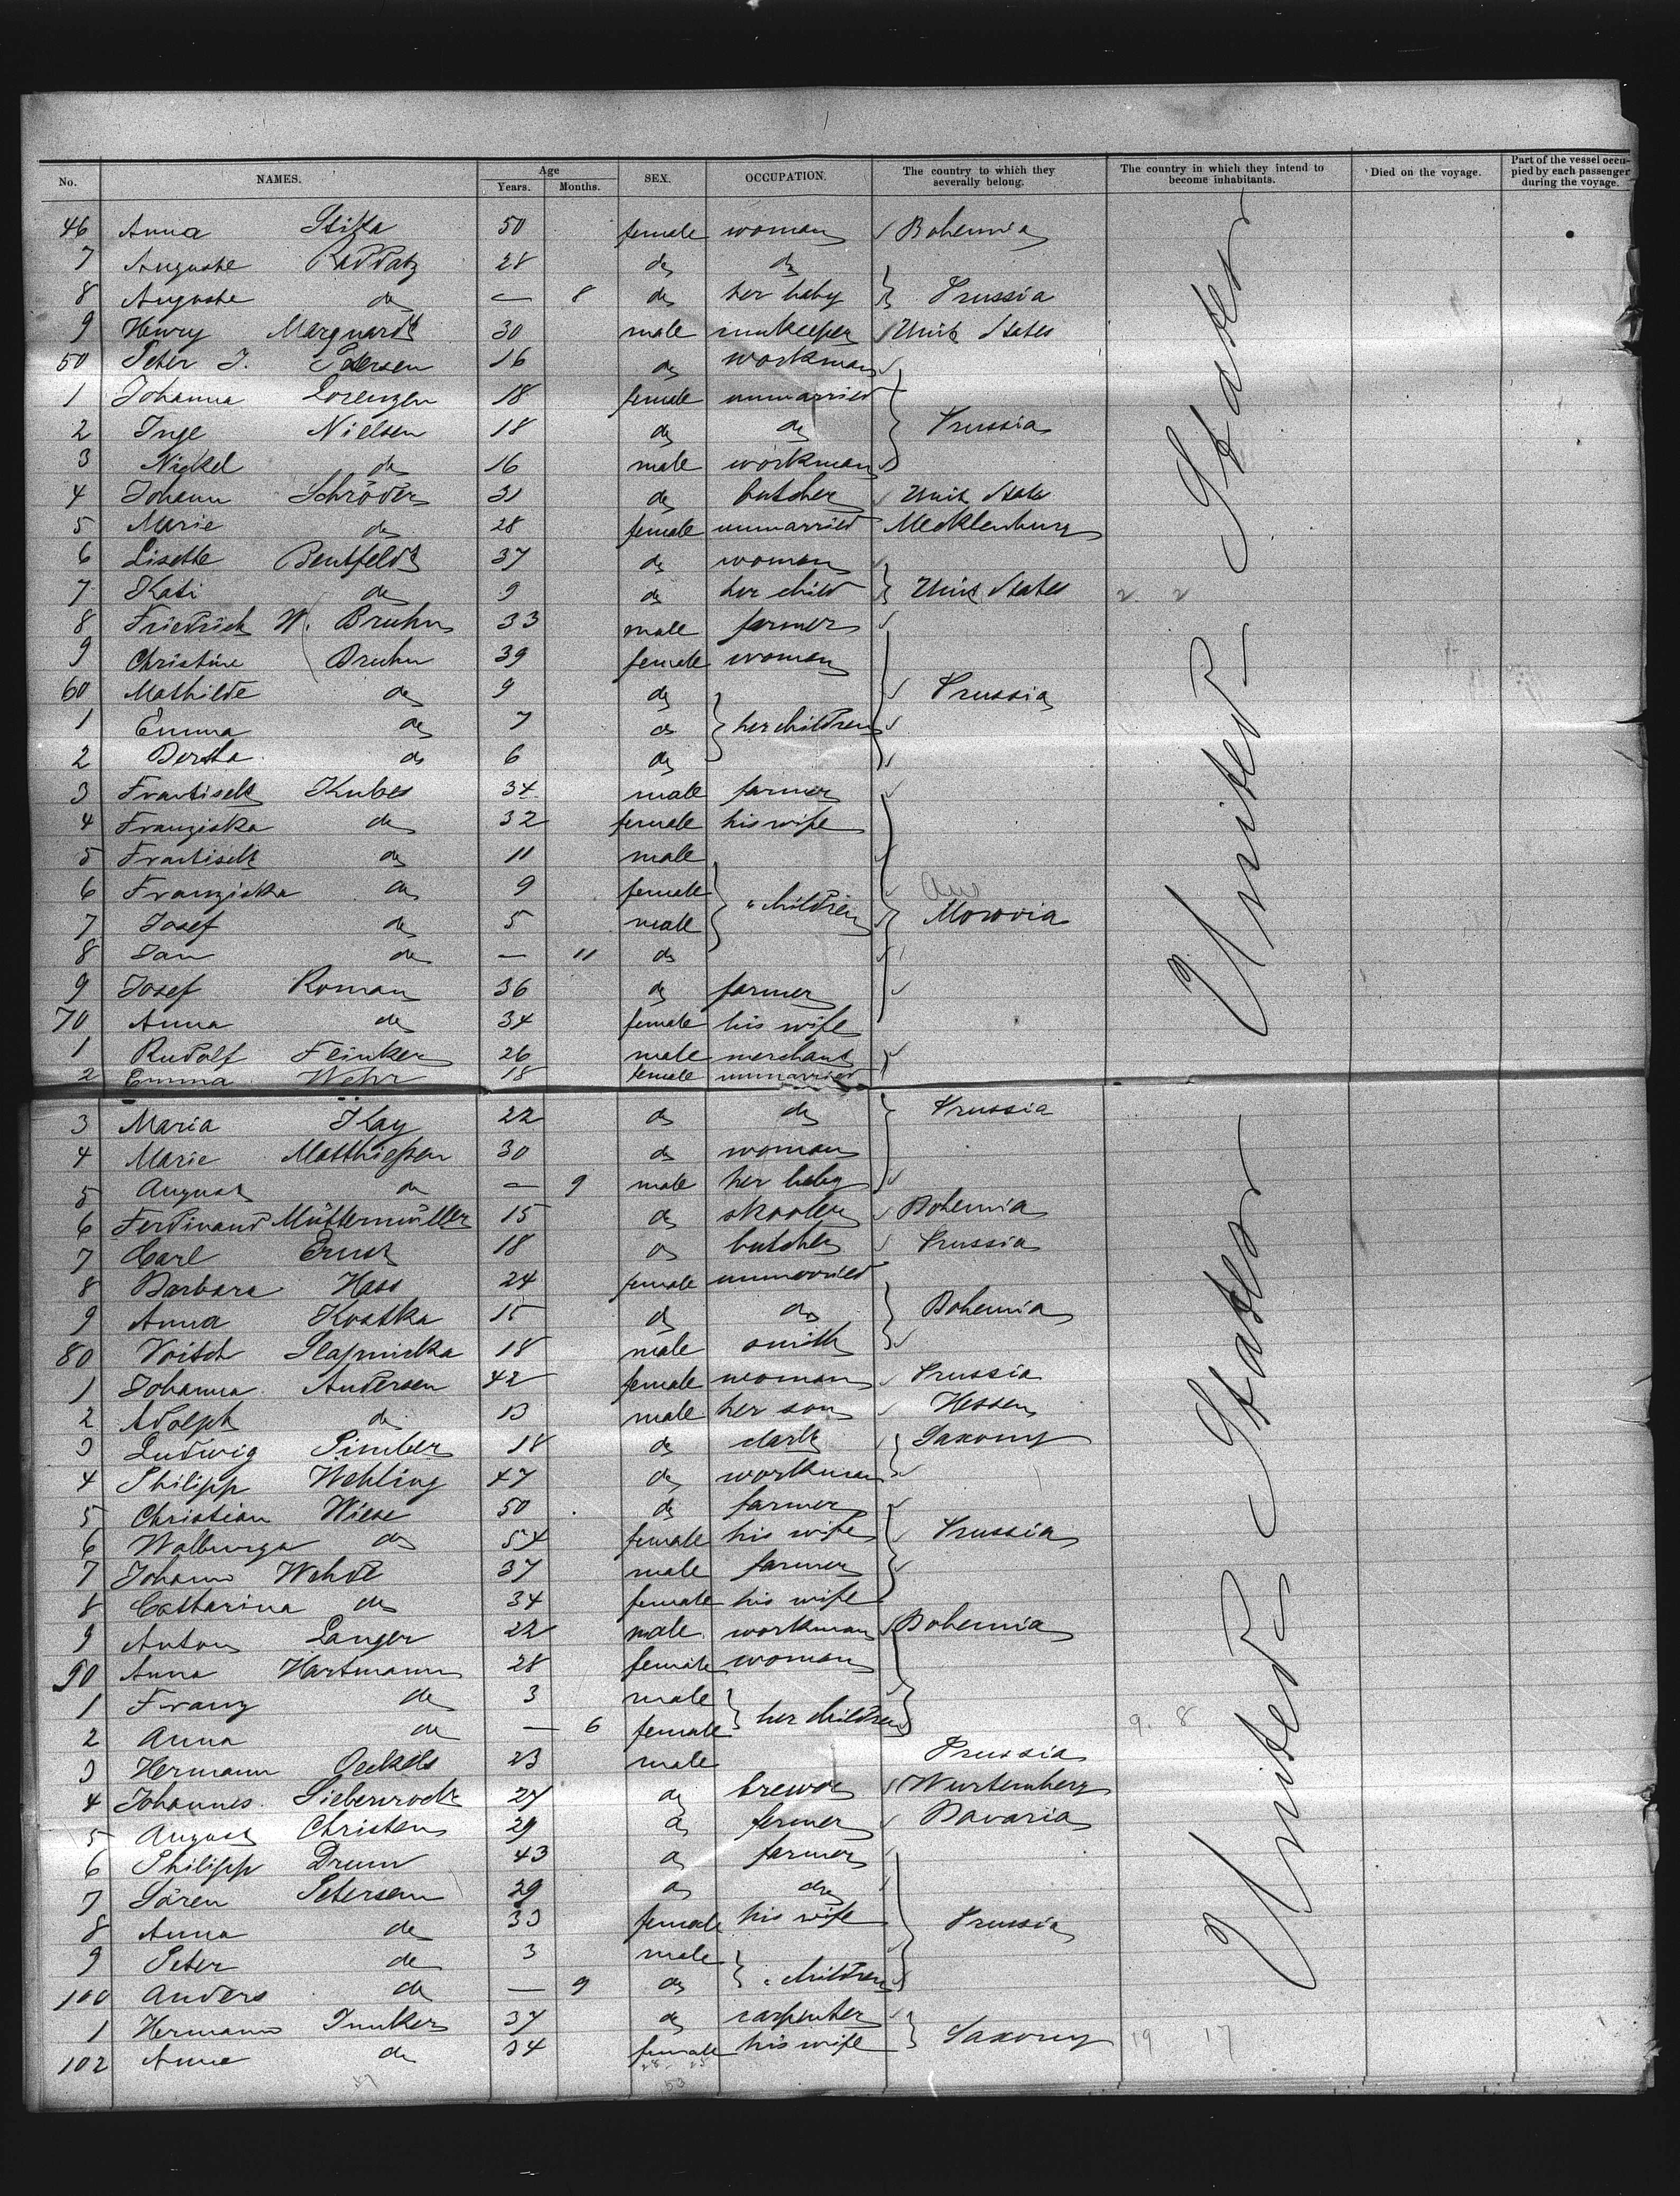 No. NAMES. Age Years. Months. SEX. OCCUPATION. The country to which they severally belong. The country in which they intend to become inhabitants. Died on the voyage. Part of the vessel occupied by each passenger during the voyage.
46 Anna 50 female woman Bohemia
7 Auguste Raddatz 28 do do
8 Auguste do — 8 do her baby Prussia
9 Henry Marquardt 30 male innkeeper Unit States
50 Peter J. Edersen 16 do workman
1 Johanna Lorenzen 18 female unmarried
2 Inge Nielsen 18 do do Prussia
3 Nickel do 16 male workman
4 Johann Schröder 31 do butcher Unit States
5 Marie do 28 female unmarried Mecklenburg
6 Lisette Bentfeldt 37 do woman
7 Kati do 9 do her child Unit States 2 2
8 Friedrich W. Bruhn 33 male farmer
9 Christine Bruhn 39 female woman
60 Mathilde do 9 do Prussia
1 Emma do 7 do her children
2 Bertha do 6 do
3 Frantisek Kubes 34 male farmer
4 Franziska do 32 female his wife
5 Frantisek do 11 male
6 Franziska do 9 female Aus
7 Josef do 5 male " children Morovia
8 Jan do — 11 do
9 Josef Roman 36 do farmer
70 Anna do 34 female his wife
1 Rudolf Feinker 26 male merchant
2 Emma Wehr 18 female unmarried
United States
3 Maria Kay 22 do do Prussia
4 Marie Matthießen 30 do woman
5 August do — 9 male her baby
6 Ferdinand Müttermüller 15 do skooler Bohemia
7 Carl Ernst 18 do butcher Prussia
8 Barbara Hass 24 female unmarried
9 Anna Kostka 15 do do Bohemia
80 Voitch Slapnicka 18 male smith
1 Johanna Andersen 42 female woman Prussia
2 Adolph do 13 male her son Hessen
3 Ludwig Pimber 18 do clark Saxony
4 Philipp Wehling 47 do workman
5 Christian Wiese 50 do farmer
6 Walburga do 54 female his wife Prussia
7 Johann Wehde 37 male farmer
8 Catharina do 34 female his wife
9 Anton Langer 22 male workman Bohemia
90 Anna Hartmann 28 female woman
1 Franz do 3 male her children
2 Anna do — 6 female 9. 8
3 Hermann Oeckels 23 male Prussia
4 Johannes Lieberrodt 27 do brewer Wurtemberg
5 August Christen 29 do farmer Bavaria
6 Philipp Drum 43 do farmer
7 Sören Petersen 29 do do
8 Anna do 33 female his wife Prussia
9 Peter do 3 male
100 Anders do — 9 do " children
1 Hermann Junker 37 do carpenter Saxony
102 Anna do 34 female his wife 19 17
United States
53